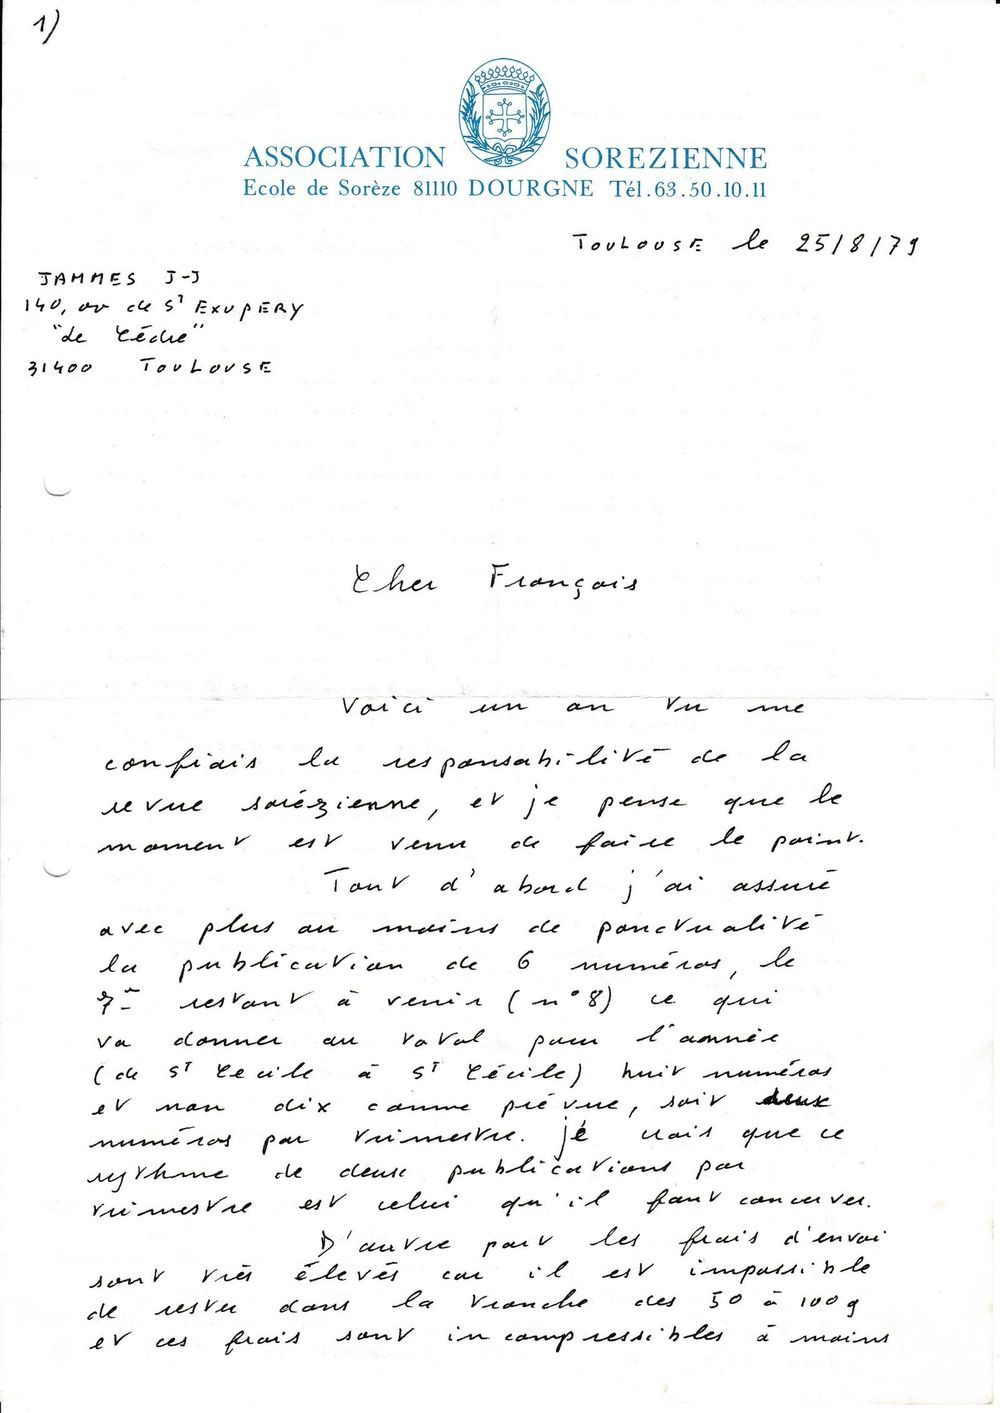 1)
ASSOCIATION SOREZIENNE
Ecole de Sorèze 81110 DOURGNE Tél.63.50.10.11
TOULOUSE le 25/8/79
JAMMES J-J
140, av de St EXUPERY
"Le Cèdre"
31400 TOULOUSE
Cher François
Voici un an tu me
confiais la responsabilité de la
revue sorézienne, et je pense que le
moment est venu de faire le point.
Tout d'abord j'ai assuré
avec plus ou moins de ponctualité
la publication de 6 numéros, le
7me restant à venir (n°8) ce qui
va donner au total pour l'année
(de St Cecile à St Cécile) huit numéros
et non dix comme prévue, soit deux
numéros par trimestre. je crois que ce
rythme de deux publications par
trimestre est celui qu'il faut concerver.
D'autre part les frais d'envoi
sont très élevés car il est impossible
de rester dans la tranche des 50 à 100g
et ces frais sont incompressibles à moins